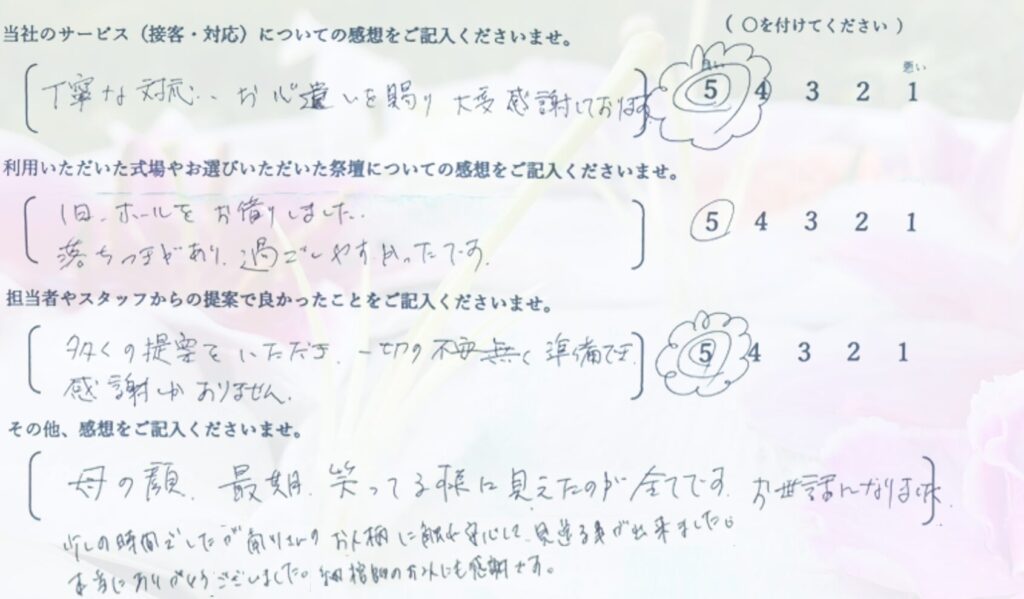 当社のサービス（接客・対応）についての感想をご記入くださいませ。 （ 〇を付けてください ）
丁寧な対応、お心遣いを賜り 大変感謝しております 良い 悪い
5 4 3 2 1
利用いただいた式場やお選びいただいた祭壇についての感想をご記入くださいませ。
1日、ホールをお借りしました。
5 4 3 2 1
落ち つきがあり、過ごしやすかったです。
担当者やスタッフからの提案で良かったことをご記入くださいませ。
多くの提案をいただき、一切の不安無く準備でき、
5 4 3 2 1
感謝しかありません。
その他、感想をご記入くださいませ。
母の顔、最期、笑ってる様に見えたのが全てです。お世話になりました。
少しの時間でしたが のお人柄に触れ安心して、見送る事が出来ました。
本当にありがとうございました。 の方々にも感謝です。